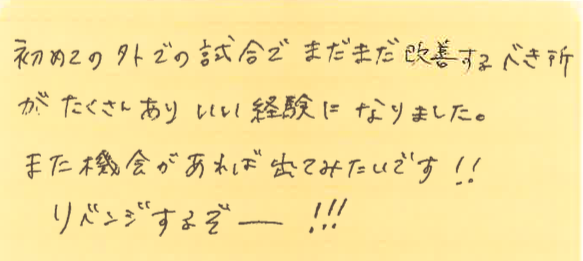 初めての外での試合でまだまだ改善するべき所
がたくさんありいい経験になりました。
また機会があれば出てみたいです!!
リベンジするぞー!!!